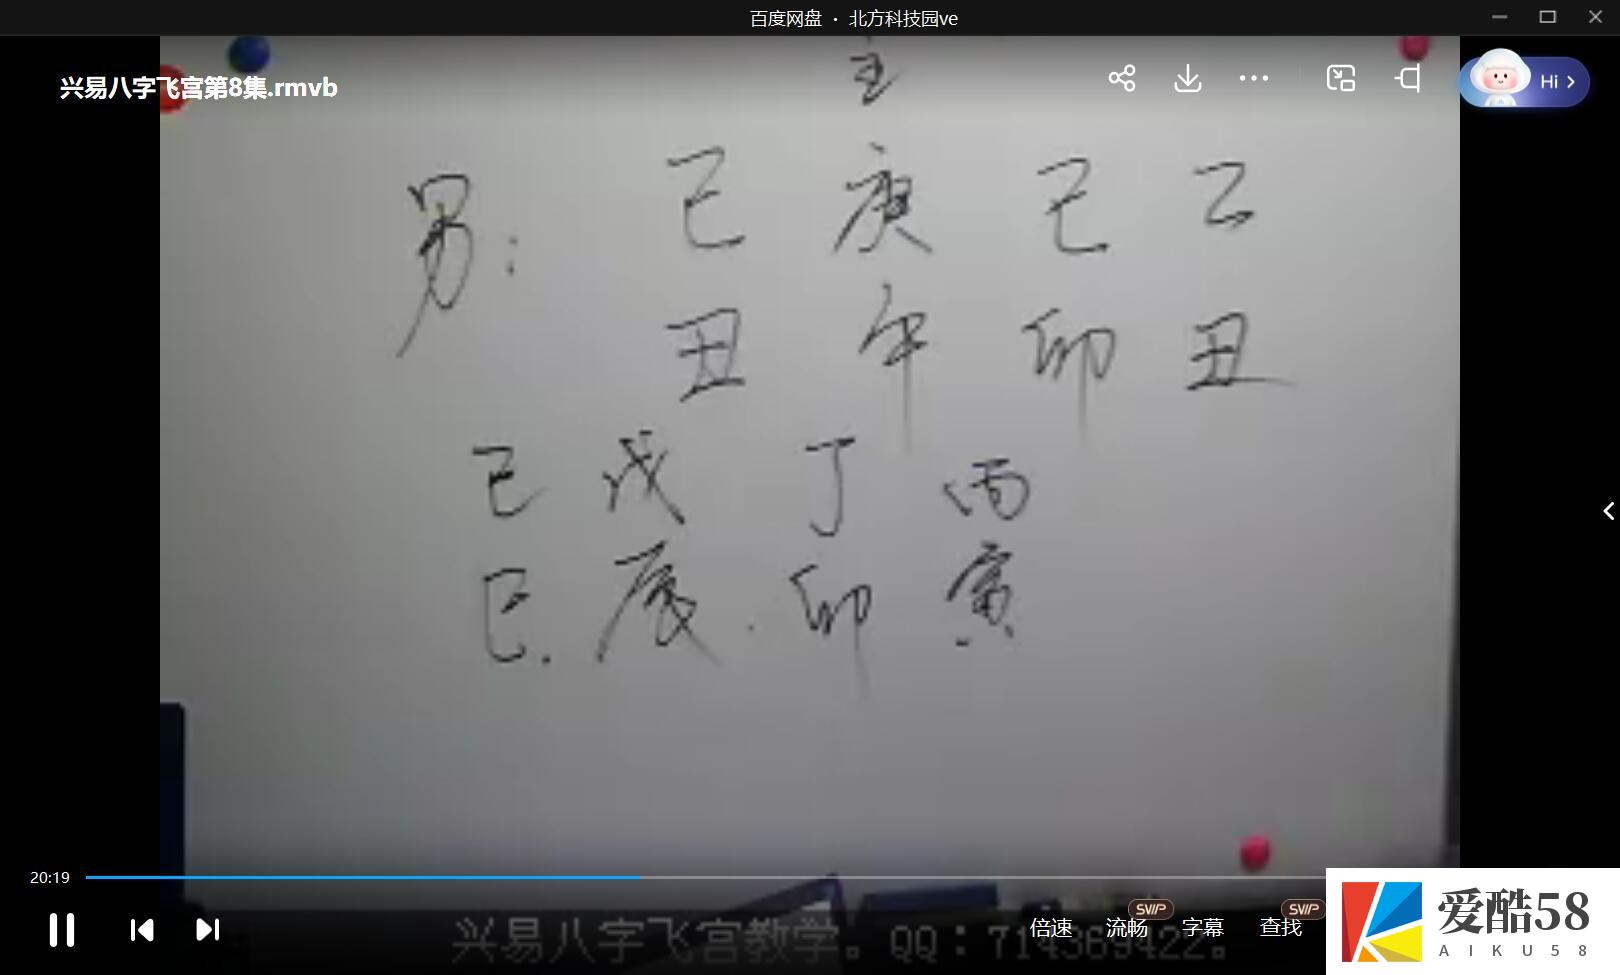 百度网盘 · 北方科技园ve
兴易八字飞宫第8集.rmvb
Hi
主
男： 己 庚 己 乙
丑 午 卯 丑
己 戊 丁 丙
巳. 辰. 卯 寅
20:19
兴易八字飞宫教学。QQ：714369422。
倍速 流畅 SVIP 字幕 查找 SVIP
爱酷58
AIKU58